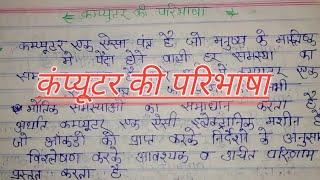 कम्प्यूटर की परिभाषा
कम्प्यूटर एक ऐसा यंत्र है जो मनुष्य के मस्तिष्क
में पैदा होने वाली समस्या का
कंप्यूटर की परिभाषा
भौतिक समस्याओं का समाधान करता है
अर्थात कम्प्यूटर एक ऐसी इलेक्ट्रानिक मशीन है
जो आंकड़ों को प्राप्त करके निर्देशों के अनुसार
विश्लेषण करके आवश्यक व उचित परिणाम
प्रस्तुत करता है